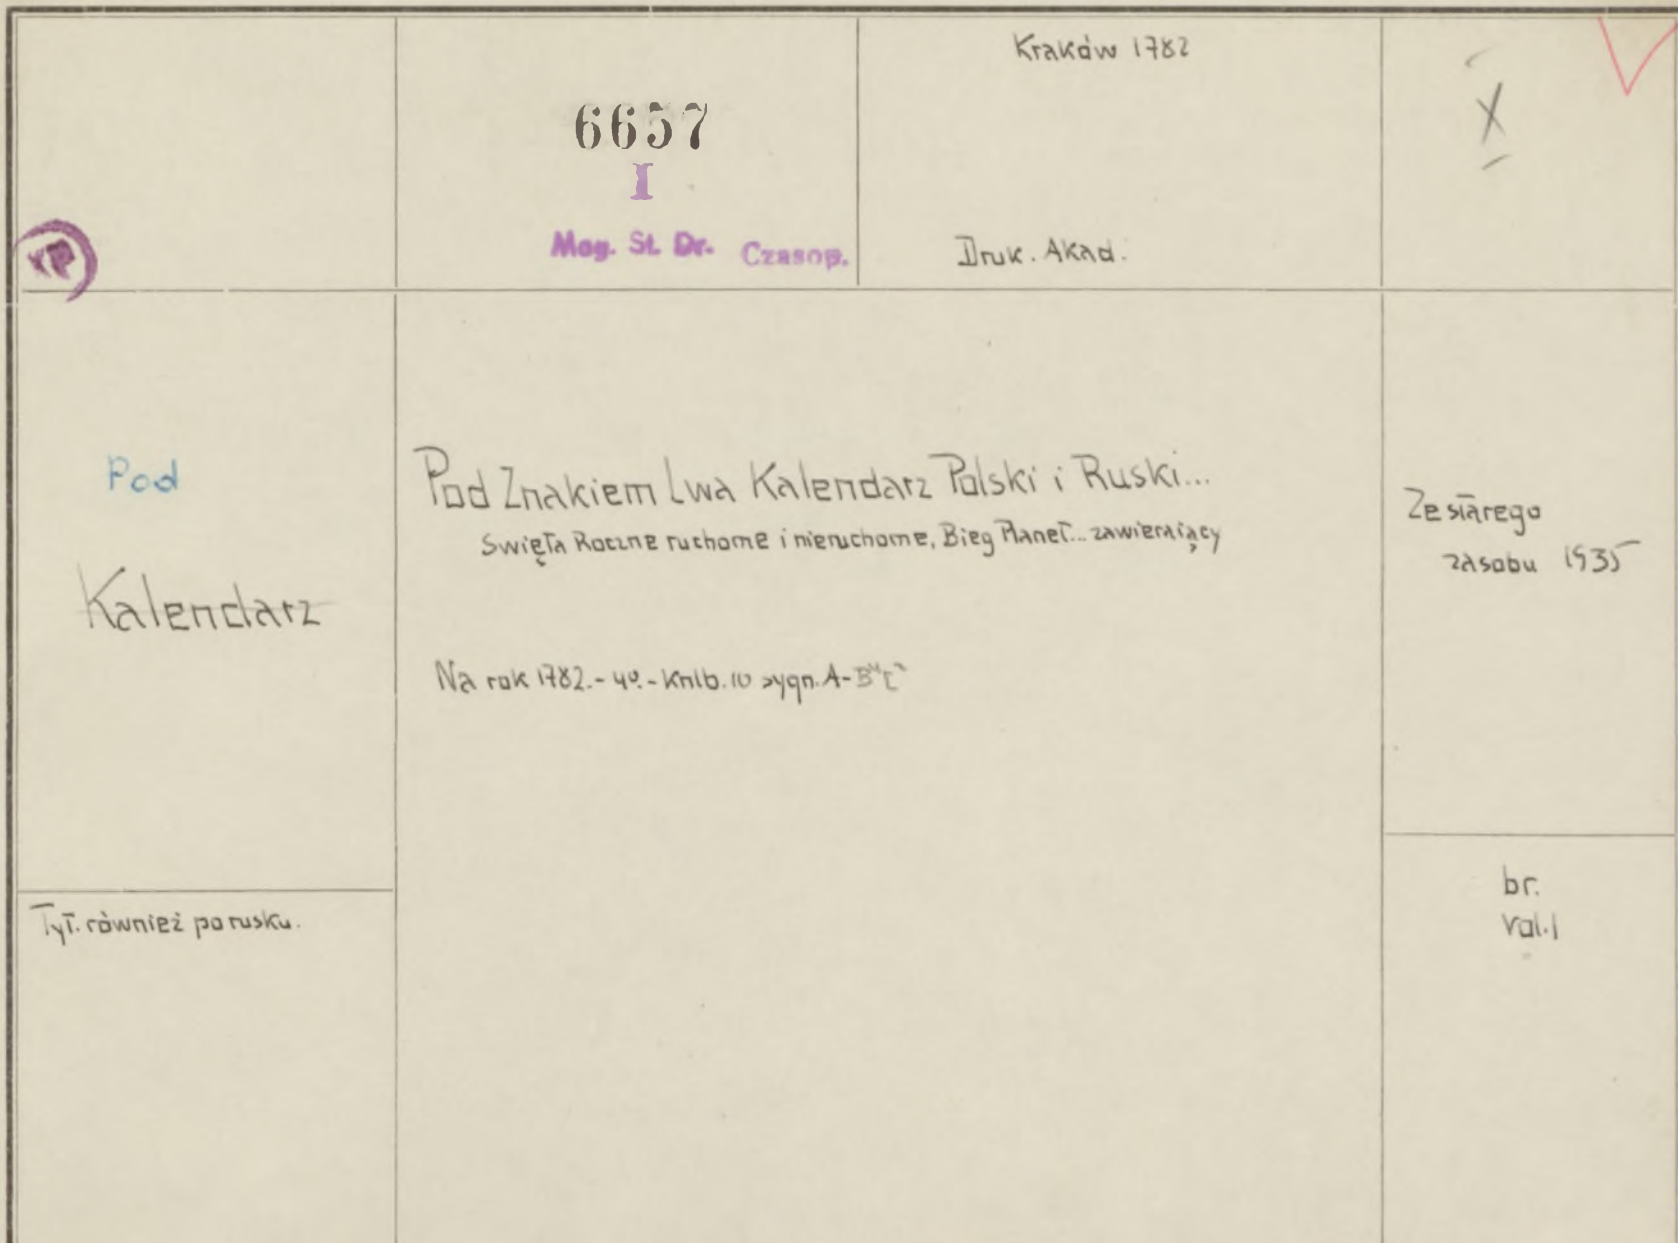 Kraków 1782
X
6657
I
Mag. St. Dr. Czasop.
Druk. Akad.
Pod
Kalendarz
Pod Znakiem Lwa Kalendarz Polski i Ruski...
Swięta Roczne ruchome i nieruchome, Bieg Planet... zawieraiący
Na rok 1782.- 4º.- Knlb. 10 sygn. A-B⁴
Ze starego
zasobu 1935
Tyt. również po rusku.
br.
vol. 1